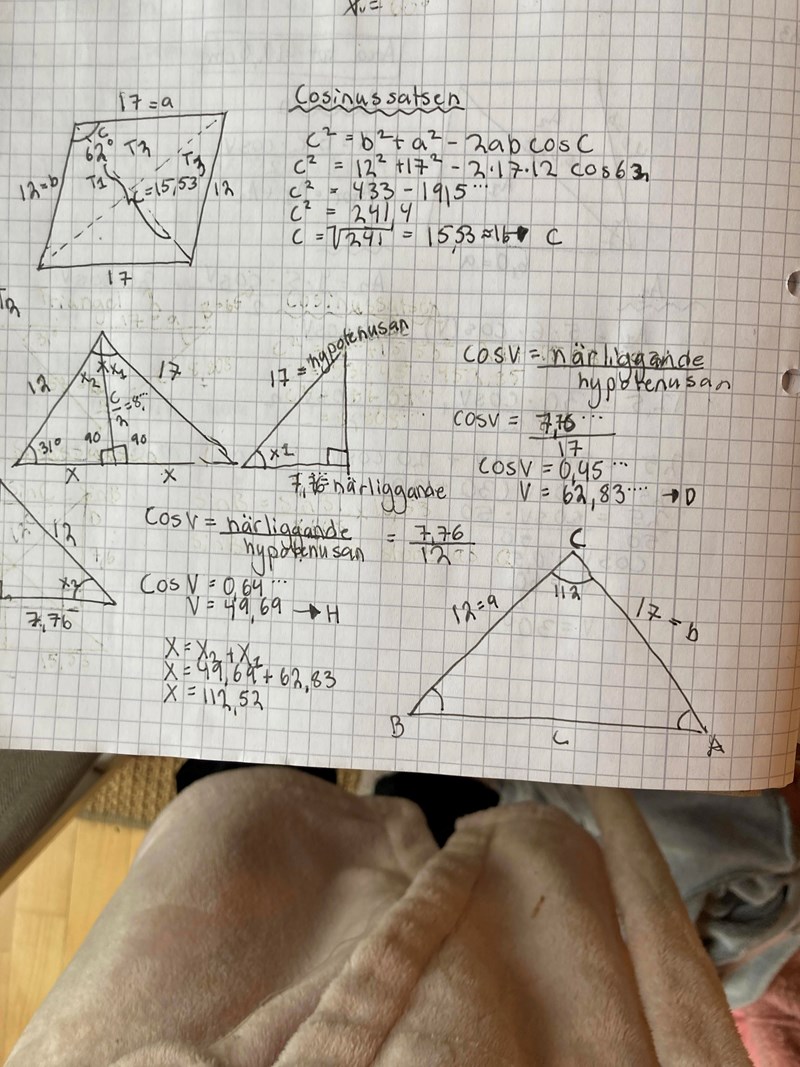 Xv=
17=a
Cosinussatsen
C
62°
T2
T3
12=b
T1
C=15,53
12
17
c² = b² + a² - 2ab cosC
c² = 12² + 17² - 2·17·12 cos62
c² = 433 - 191,5...
c² = 241,4
c = √241 = 15,53 ≈ 16 → C
T2
12
x₂
x₁
17
C/2=8...
31°
90
90
x
x
17 = hypotenusan
x1
7,76=närliggande
cosV = närliggande
hypotenusan
cosV = 7,76...
17
cosV = 0,45...
V = 62,83.... → D
12
x2
7,76
cosV = närliggande = 7,76
hypotenusan 12...
cosV = 0,64...
V = 49,69 → H
X = X₂ + X₁
X = 49,69 + 62,83
X = 112,52
C
112
12=a
17=b
B
C
A